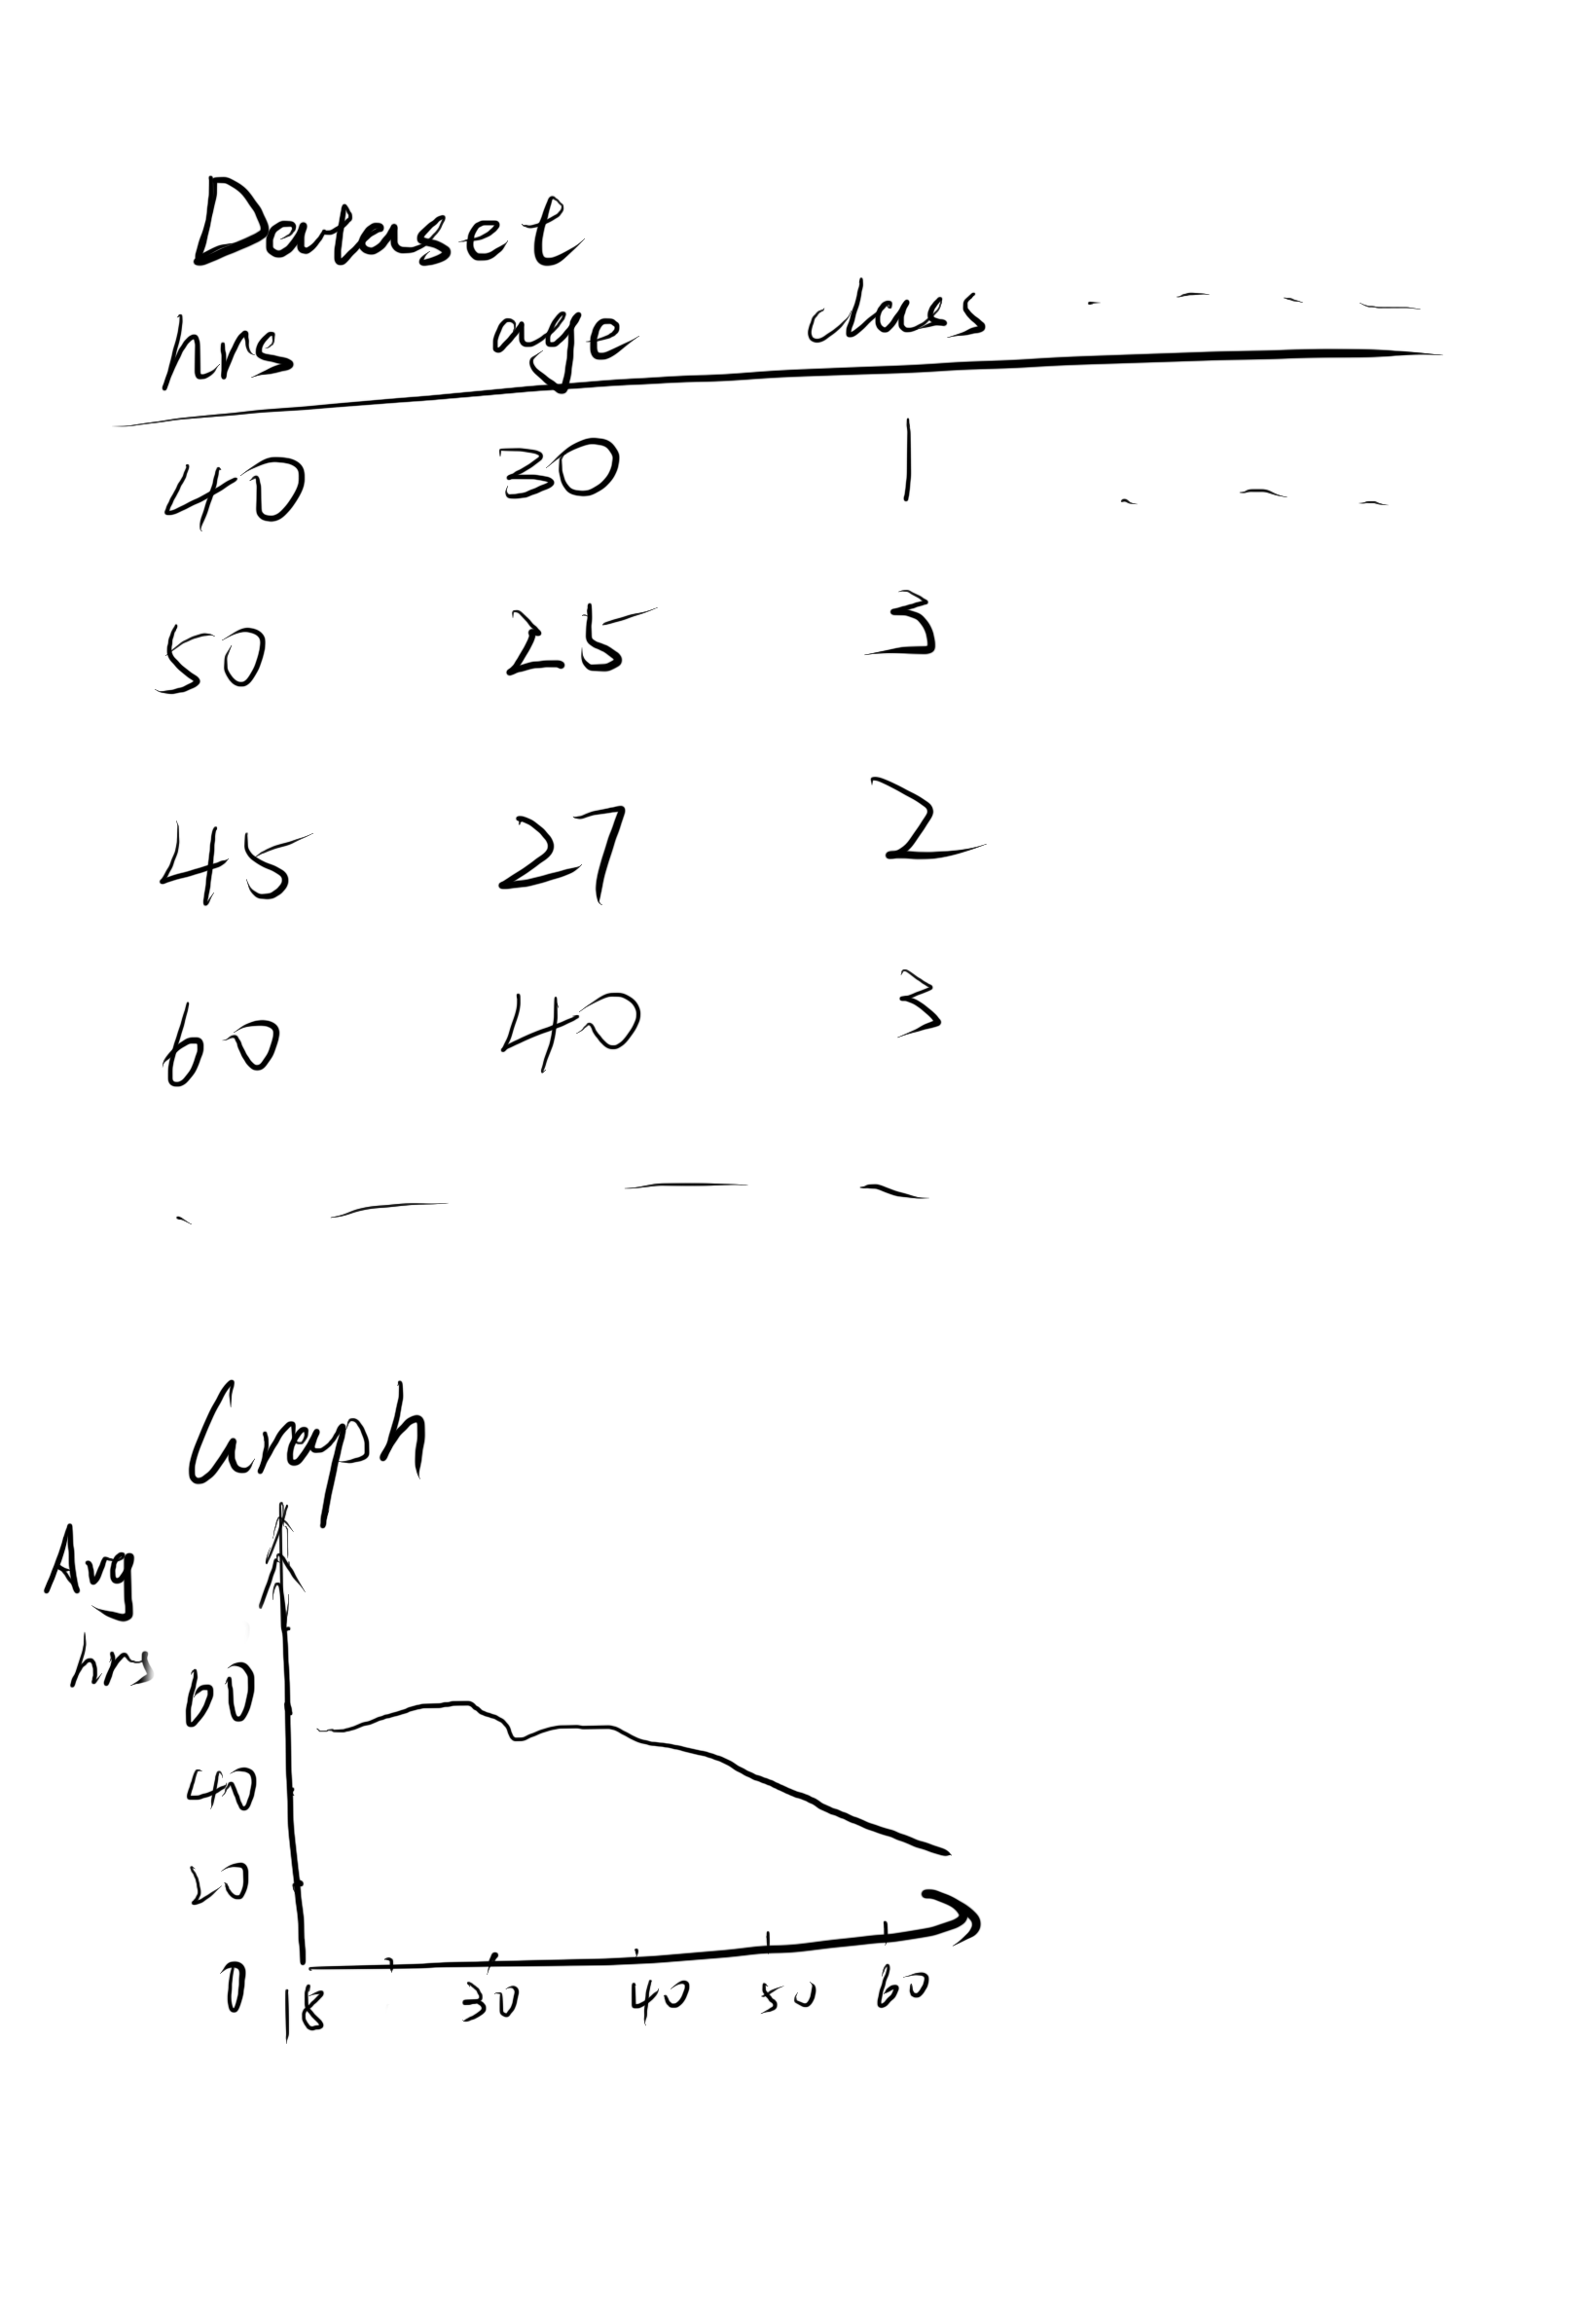 Dataset
hrs age class
40 30 1
50 25 3
45 27 2
60 40 3
Graph
Avg
hrs
60
40
20
0 18 30 40 50 60